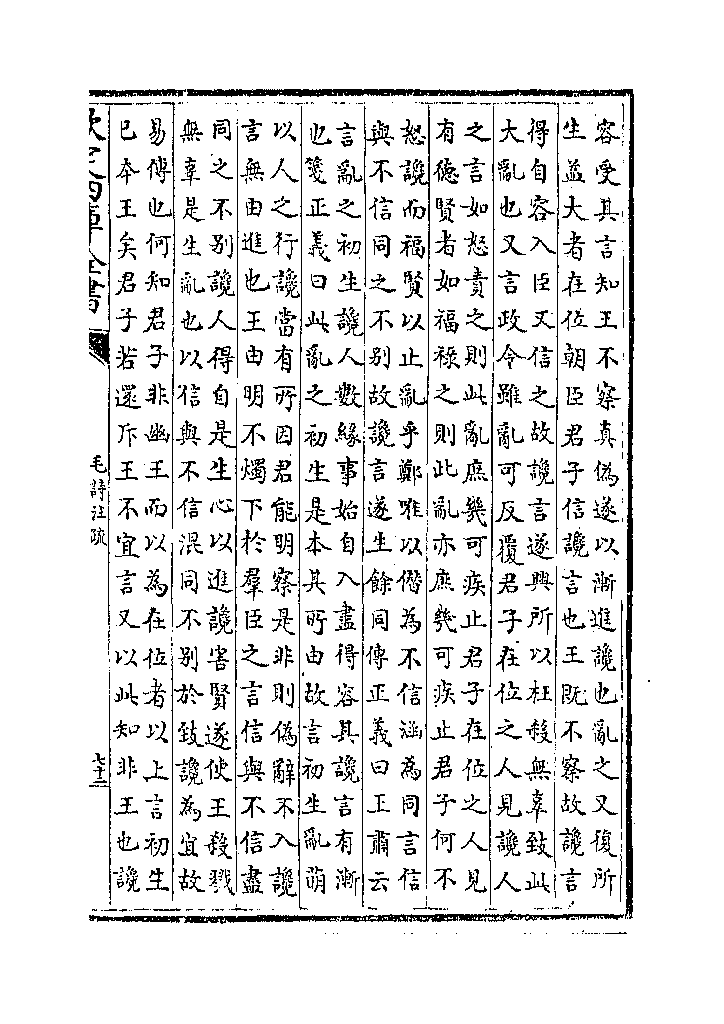 容受其言知王不察真偽遂以漸進讒也亂之又復所
生益大者在位朝臣君子信讒言也王既不察故讒言
得自容入臣又信之故讒言遂興所以枉殺無辜致此
大亂也又言政令雖亂可反覆君子在位之人見讒人
之言如怒責之則此亂庶幾可疾止君子在位之人見
有德賢者如福祿之則此亂亦庶幾可疾止君子何不
怒讒而福賢以止亂乎鄭唯以僭為不信涵為同言信
與不信同之不别故讒言遂生餘同傳正義曰王肅云
言亂之初生讒人數緣事始自入盡得容其讒言有漸
也箋正義曰此亂之初生是本其所由故言初生亂萌
以人之行讒當有所因君能明察是非則偽辭不入讒
言無由進也王由明不燭下於羣臣之言信與不信盡
同之不别讒人得自是生心以進讒害賢遂使王殺戮
無辜是生亂也以信與不信混同不别於致讒為宜故
易傳也何知君子非幽王而以為在位者以上言初生
已本王矣君子若還斥王不宜言又以此知非王也讒
欽定四庫全書
毛詩注疏